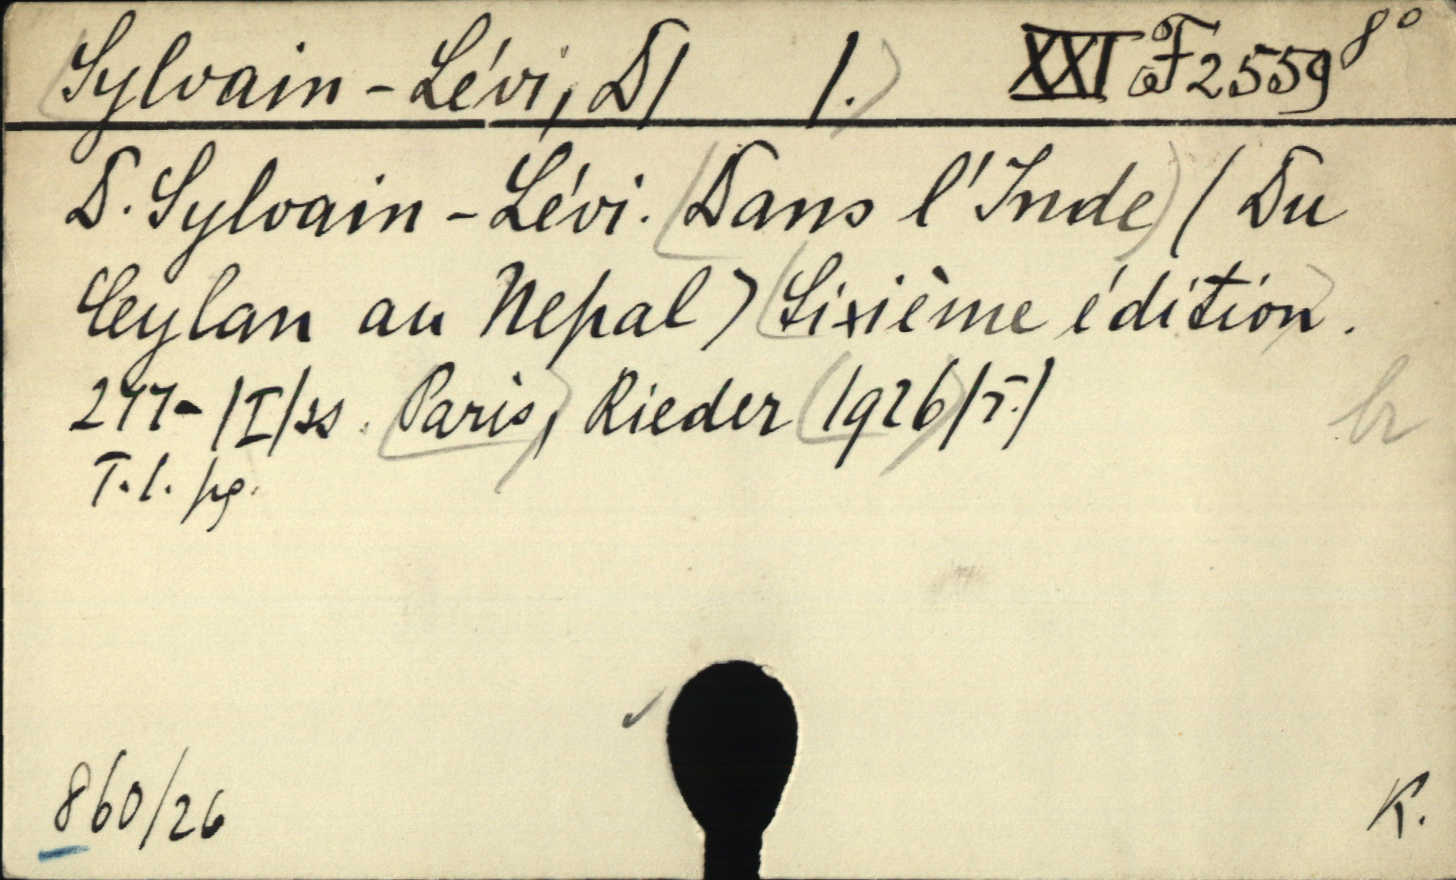 Sylvain-Lévi, D/ 1.) XXI F 2559 8°
D. Sylvain-Lévi. (Dans l'Inde) (Du
Ceylan au Nepal) (Sixième édition).
277-/I/ss. (Paris), Rieder (1926)/т./
T.l. pg.
br
860/26
K.